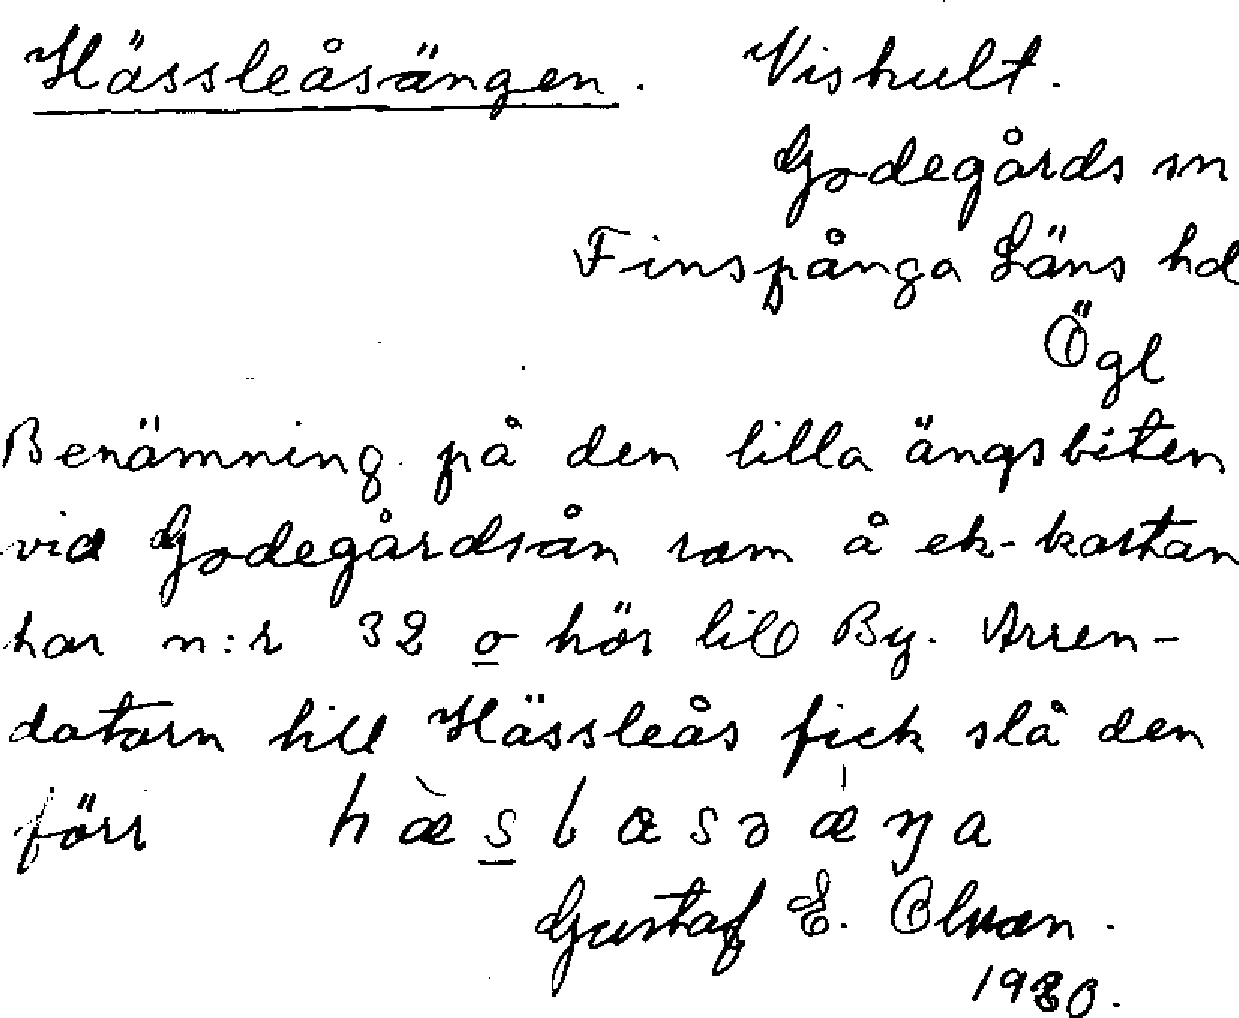 Hässleåsängen. Viskult.
Godegårds sn
Finspånga Läns hd
Ögl
Benämning på den lilla ängsbiten
vid Godegårdsån som å ek-kartan
har n:r 32 o hör till By. Arren-
datorn till Hässleås fick slå den
förr
Gustaf E. Olson.
1930.